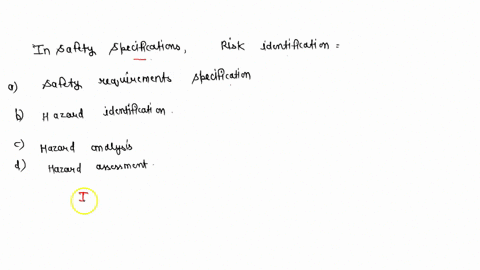 In safety specifications, Risk identification =
a) safety requirements specification
b) Hazard identification.
c) Hazard analysis
d) Hazard assessment.
I